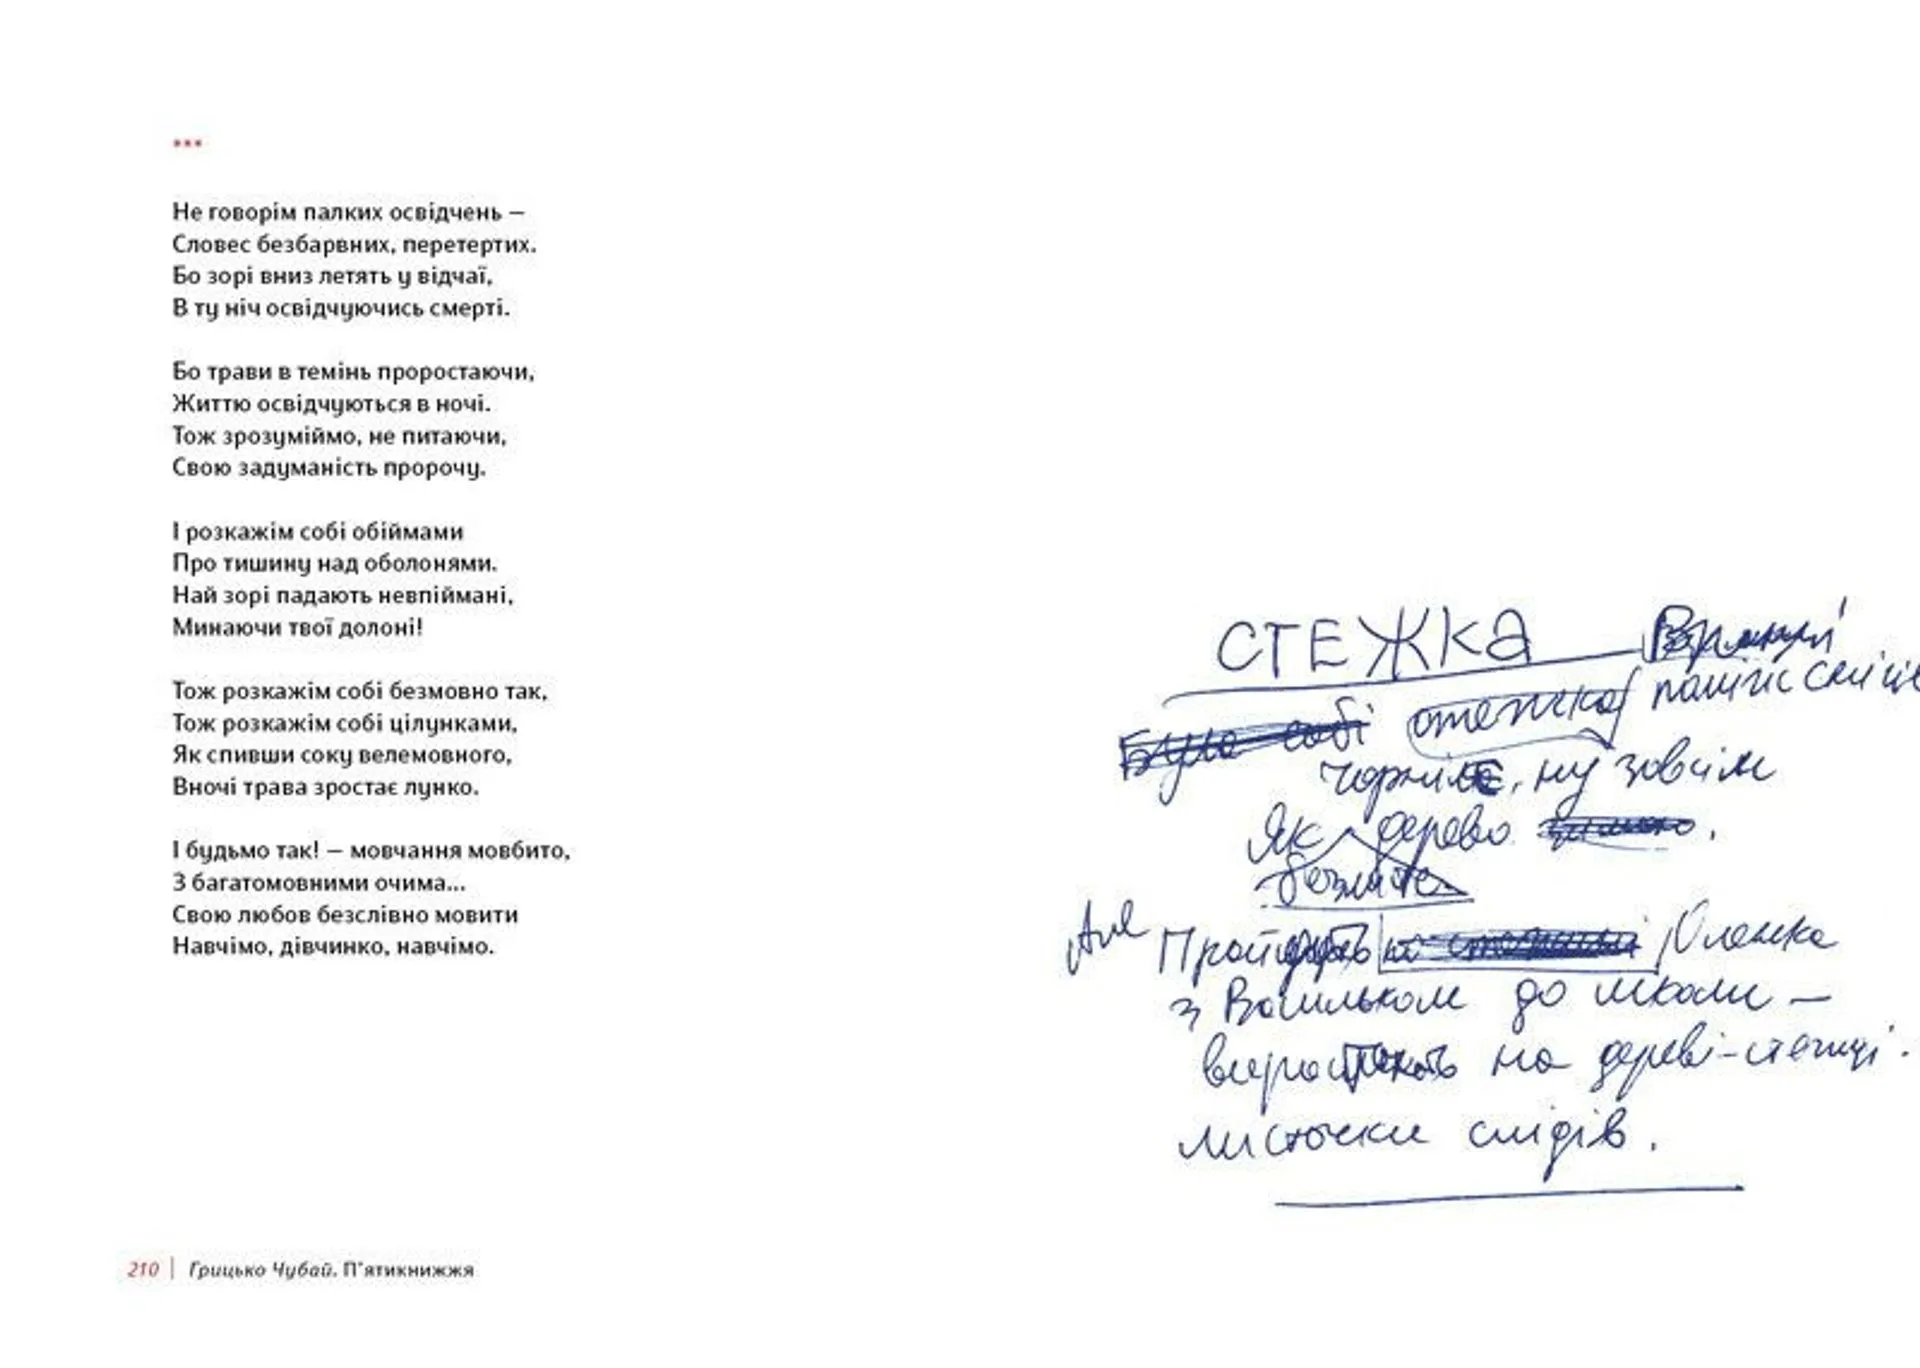 ***
Не говорім палких освідчень —
Словес безбарвних, перетертих.
Бо зорі вниз летять у відчаї,
В ту ніч освідчуючись смерті.
Бо трави в темінь проростаючи,
Життю освідчуються в ночі.
Тож зрозуміймо, не питаючи,
Свою задуманість пророчу.
І розкажім собі обіймами
Про тишину над оболонями.
Най зорі падають невпіймані,
Минаючи твої долоні!
Тож розкажім собі безмовно так,
Тож розкажім собі цілунками,
Як спивши соку велемовного,
Вночі трава зростає лунко.
І будьмо так! — мовчання мовбито,
З багатомовними очима...
Свою любов безслівно мовити
Навчімо, дівчинко, навчімо.
210 | Грицько Чубай. П'ятикнижжя
СТЕЖКА
собі стежка
, ну зовсім
Як дерево .
безлисте
Але Пройдуть Оленка
з Васильком до школи —
виростають на дереві-стежці
листочки слідів.